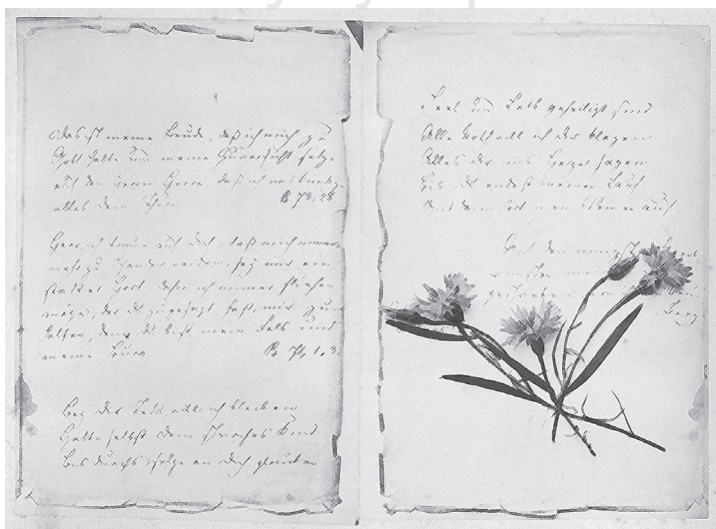 Das ist meine Freude, daß ich mich zu
Gott halte und meine Zuversicht setze
auf den Herrn Herrn, daß ich verkündige
alles dein Thun Ps 73, 28
Herr, ich traue auf dich, laß mich nimmer
mehr zu Schanden werden, sey mir ein
starker Hort, dahin ich immer fliehen
möge, der du zugesagt hast, mir zu
helfen, denn du bist mein Fels und
meine Burg Ps. 71, 1. 3.
Bey dir Jesu will ich bleiben
Halte selbst dein schwaches Kind
Bis durchs selge an dich glauben
Seel und Leib geheiligt sind
Alle Noth will ich dir klagen
Alles dir ins Herze sagen
Bis du endest meinen Lauf
Und dann hört mein Weinen auf